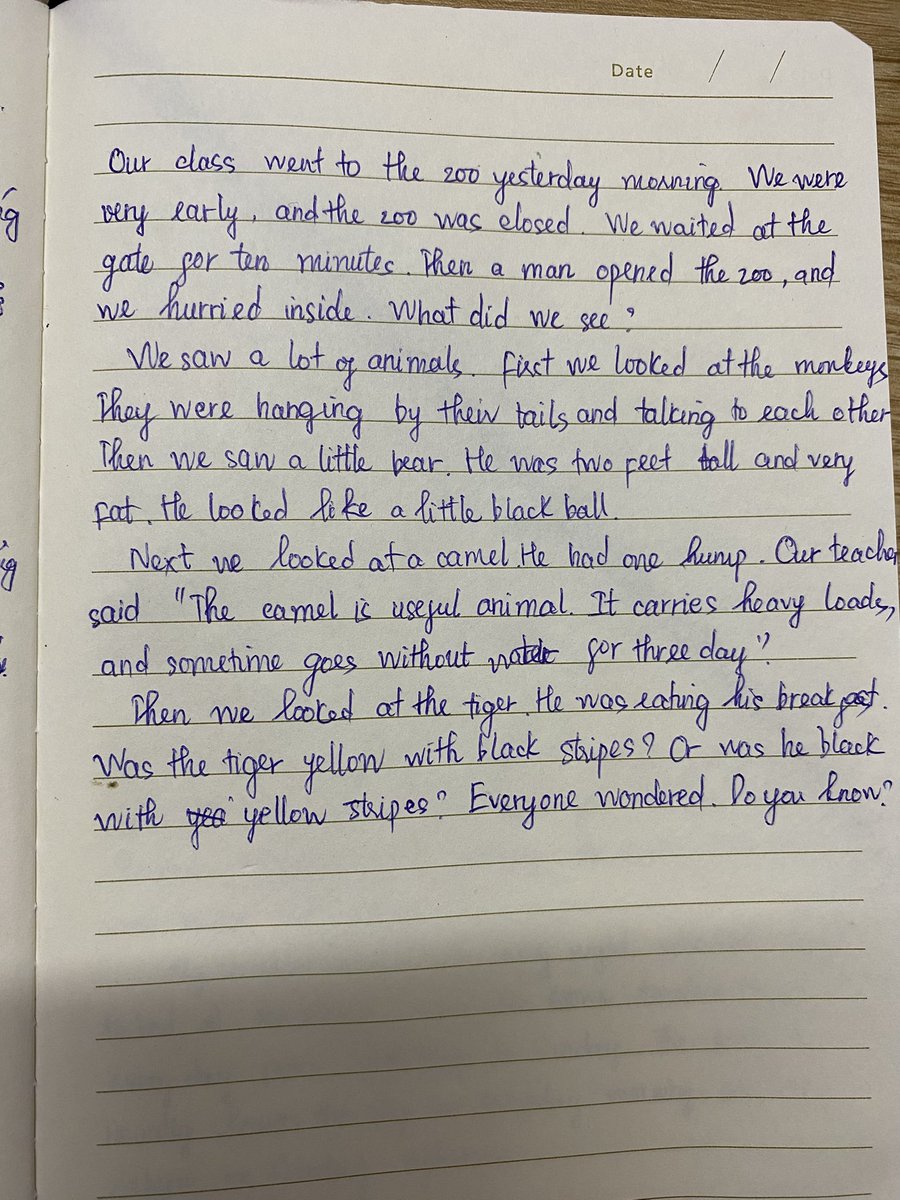 Date / /
Our class went to the zoo yesterday morning. We were
very early, and the zoo was closed. We waited at the
gate for ten minutes. Then a man opened the zoo, and
we hurried inside. What did we see?
We saw a lot of animals. First we looked at the monkeys
They were hanging by their tails and talking to each other
Then we saw a little bear. He was two feet tall and very
fat. He looked like a little black ball.
Next we looked at a camel. He had one hump. Our teacher
said "The camel is useful animal. It carries heavy loads,
and sometime goes without water for three day".
Then we looked at the tiger. He was eating his breakfast.
Was the tiger yellow with black stripes? Or was he black
with yellow stripes? Everyone wondered. Do you know?